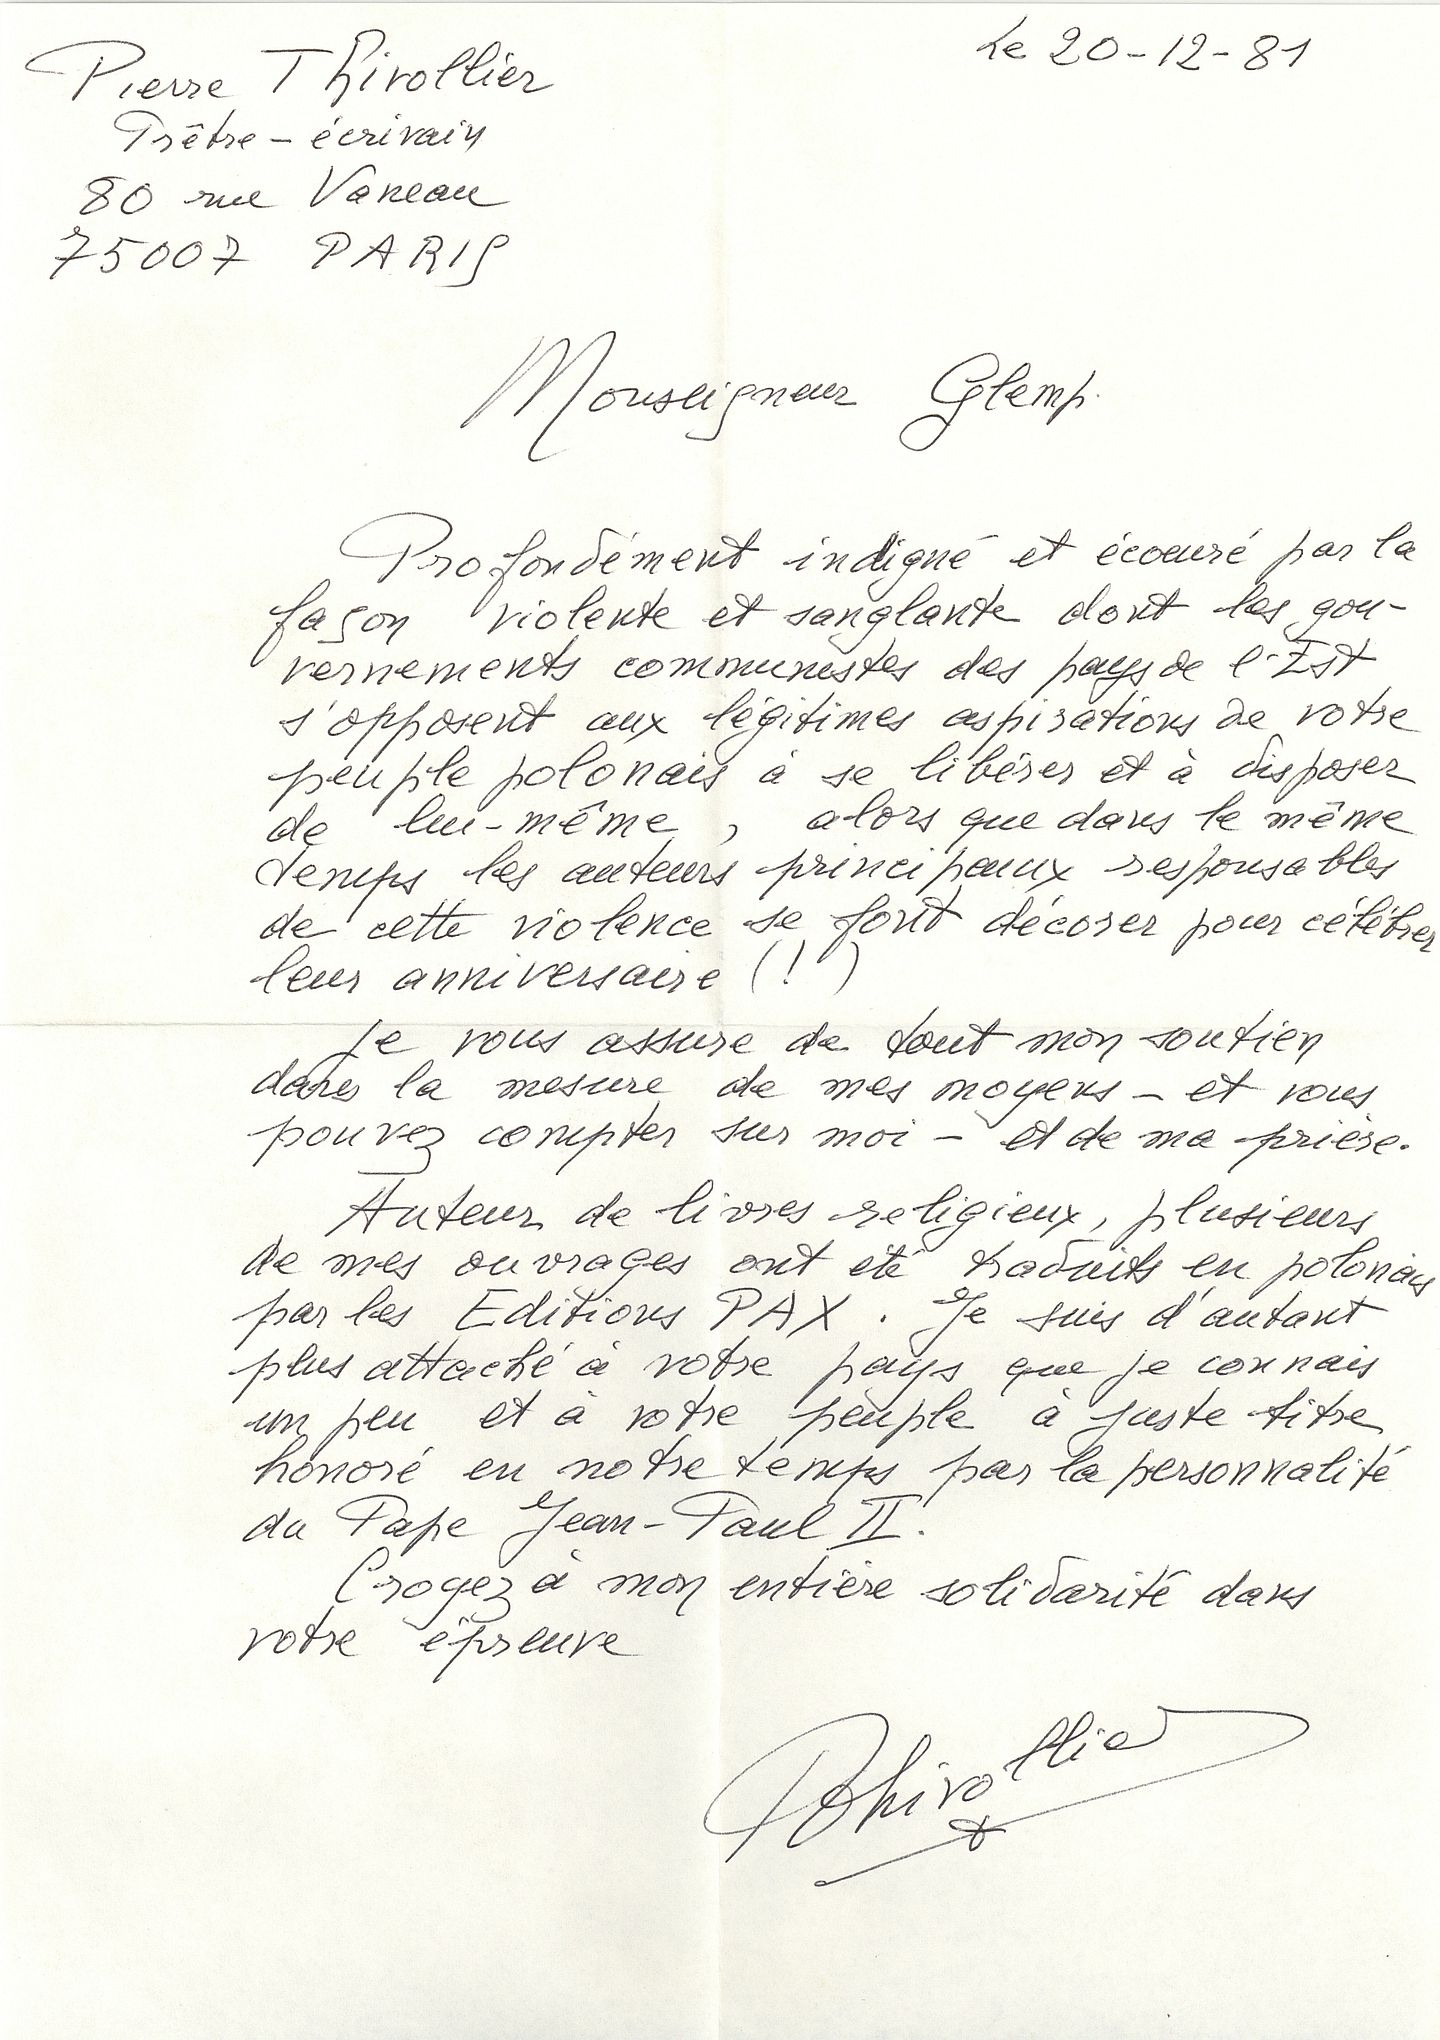 Le 20-12-81
Pierre Thivollier
Prêtre - écrivain
80 rue Vaneau
75007 PARIS
Monseigneur Glemp.
Profondément indigné et écoeuré par la
façon violente et sanglante dont les gou-
vernements communistes des pays de l'Est
s'opposent aux légitimes aspirations de votre
peuple polonais à se libérer et à disposer
de lui-même, alors que dans le même
temps les auteurs principaux responsables
de cette violence se font décorer pour célébrer
leur anniversaire (!)
Je vous assure de tout mon soutien
dans la mesure de mes moyens - et vous
pouvez compter sur moi - et de ma prière.
Auteur de livres religieux, plusieurs
de mes ouvrages ont été traduits en polonais
par les Editions PAX. Je suis d'autant
plus attaché à votre pays que je connais
un peu et à votre peuple à juste titre
honoré en notre temps par la personnalité
du Pape Jean-Paul II.
Croyez à mon entière solidarité dans
votre épreuve
PThivollier